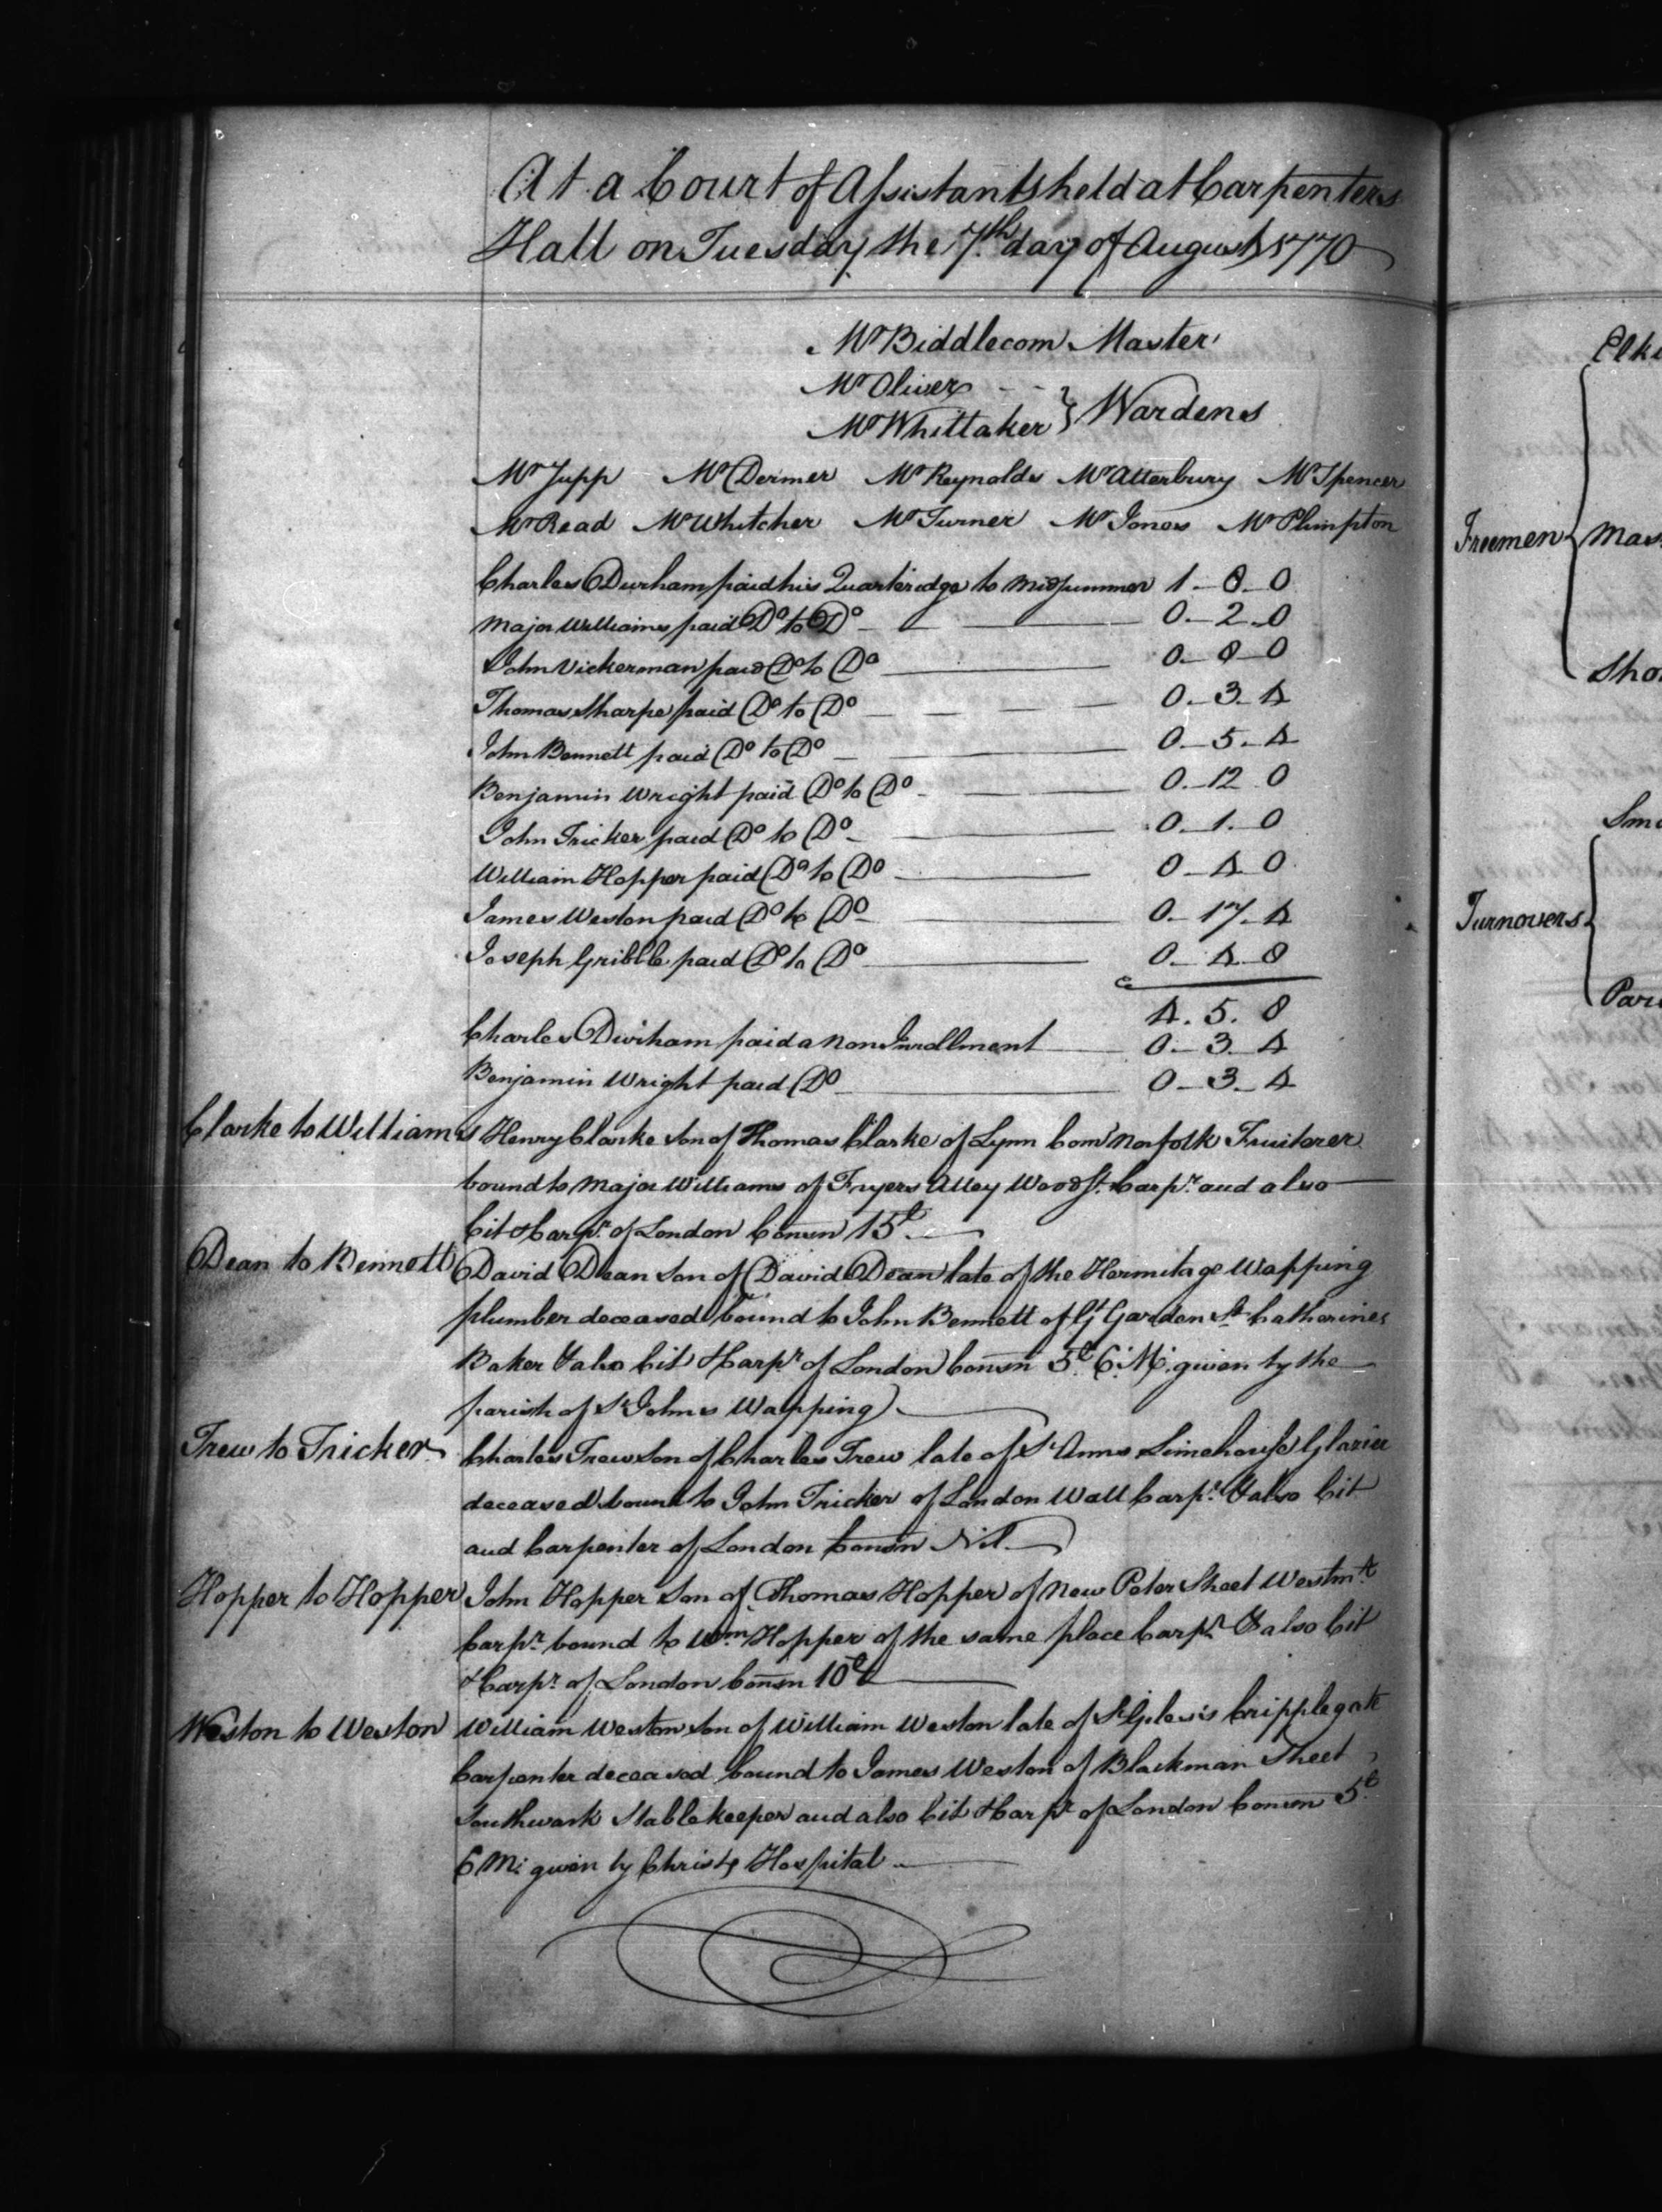 At a Court of Assistants held at Carpenters
Hall on Tuesday the 7th day of August 1770
Mr Biddlecom Master
Mr Oliver - -
Mr Whittaker } Wardens
Mr Jupp Mr Dermer Mr Reynolds Mr Atterbury Mr Spencer
Mr Read Mr Whitcher Mr Turner Mr Jones Mr Plimpton
Charles Durham paid his Quarteridge to Midsummer 1-8-0
Major Williams paid Do to Do 0-2-0
John Vickerman paid Do to Do 0-8-0
Thomas Sharpe paid Do to Do 0-3-4
John Bennett paid Do to Do 0-5-4
Benjamin Wright paid Do to Do 0-12-0
John Tricker paid Do to Do 0-1-0
William Hopper paid Do to Do 0-4-0
James Weston paid Do to Do 0-17-4
Joseph Gribble paid Do to Do 0-4-8
4.5.8
Charles Durham paid a non Inrollment 0-3-4
Benjamin Wright paid Do 0-3-4
Clarke to Williams Henry Clarke son of Thomas Clarke of Lynn Com Norfolk Fruiterer
bound to Major Williams of Fryers Alley Wood St. Carpr. and also
Cit & Carpr. of London Conson 15£
Dean to Bennett David Dean son of David Dean late of the Hermitage Wapping
plumber deceased bound to John Bennett of Gt Garden St Catherines
Baker & also Cit & Carpr of London Conson 5£ C: M: given by the
parish of St Johns Wapping)
Trew to Tricker Charles Trew Son of Charles Trew late of St Anns Limehouse Glazier
deceased bound to John Tricker of London Wall Carpr. & also Cit
and Carpenter of London Conson Nil
Hopper to Hopper John Hopper Son of Thomas Hopper of New Peter Street Westmr
Carpr. bound to Wm Hopper of the same place Carpr & also Cit
& Carpr. of London Conson 10£
Weston to Weston William Weston son of William Weston late of St Giles's Cripplegate
Carpenter deceased bound to James Weston of Blackman Street
Southwark Stablekeeper and also Cit & Carpr of London Conson 5£
C M: given by Christs Hospital
Freemen {
Turnovers {